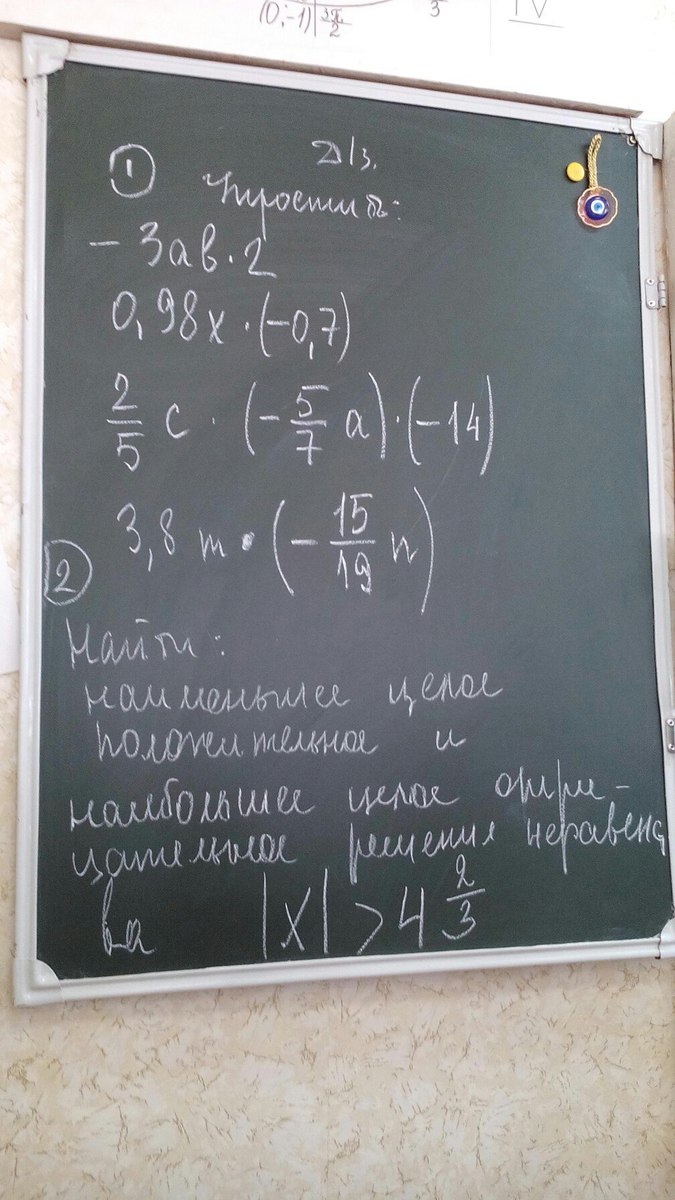 (0;-1) 3π/2
3
IV
Д/з.
① Упростить:
- 3ав · 2
0,98x · (-0,7)
2/5 c · (- 5/7 a) · (-14)
3,8 m · (- 15/19 n)
②
Найти:
наименьшее целое
положительное и
наибольшее целое отри-
цательное решения неравенст
ва |x| > 4 2/3